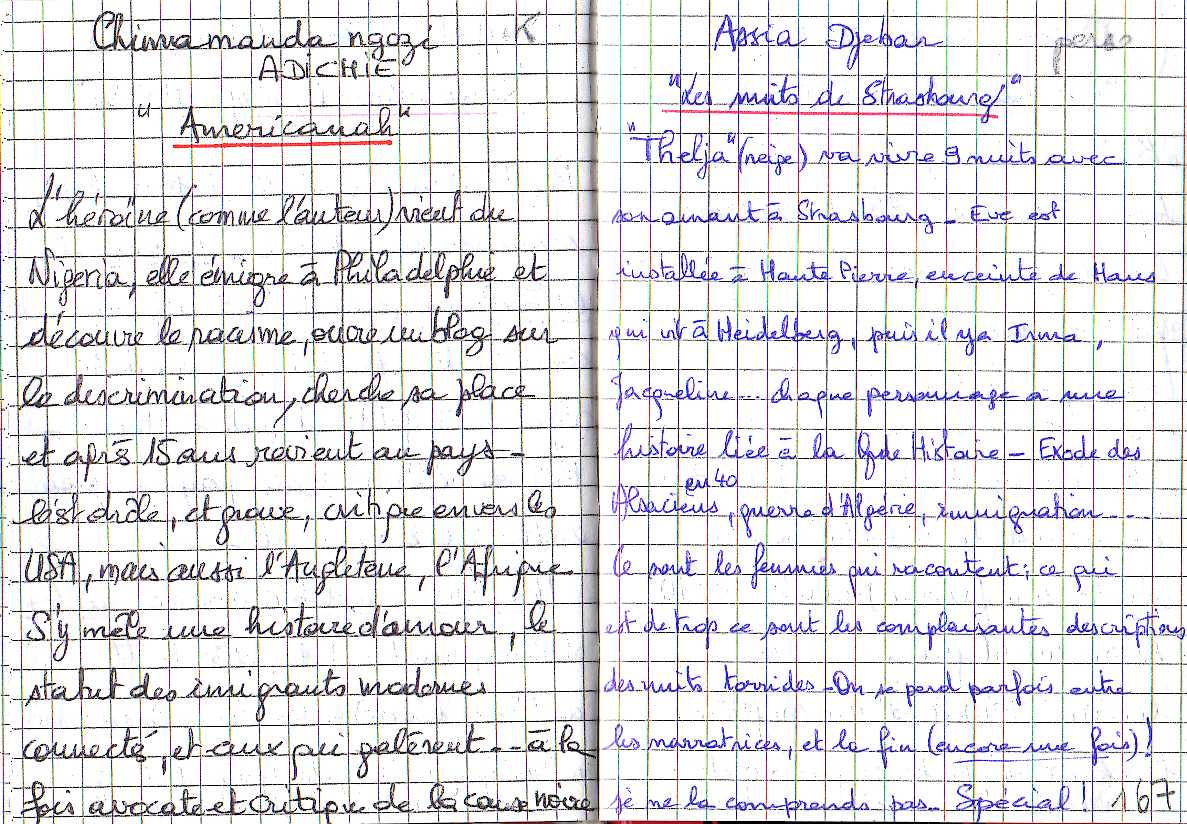 Chimamanda ngozi K
ADICHIE
"Americanah"
L'héroïne (comme l'auteur) vient du
Nigeria, elle émigre à Philadelphie et
découvre le racisme, ouvre un blog sur
la discrimination, cherche sa place
et après 15 ans revient au pays -
C'est drôle, et grave, critique envers les
USA, mais aussi l'Angleterre, l'Afrique
S'y mêle une histoire d'amour, le
statut des imigrants modernes
connecté, et ceux qui galèrent... à la
fois avocate et critique de la cause noire
Assia Djebar perso
"Les nuits de Strasbourg"
"Thelja" (neige) va vivre 9 nuits avec
son amant à Strasbourg - Eve est
installée à Haute Pierre, enceinte de Hans
qui vit à Heidelberg, puis il y a Irma,
Jacqueline... chaque personnage a une
histoire liée à la Gde Histoire - Exode des
en 40
Alsaciens, guerre d'Algérie, immigration....
Ce sont les femmes qui racontent; ce qui
est de trop ce sont les complaisantes descriptions
des nuits torrides - On se perd parfois entre
les narratrices, et la fin (encore une fois)!
je ne la comprends pas... Spécial! 167